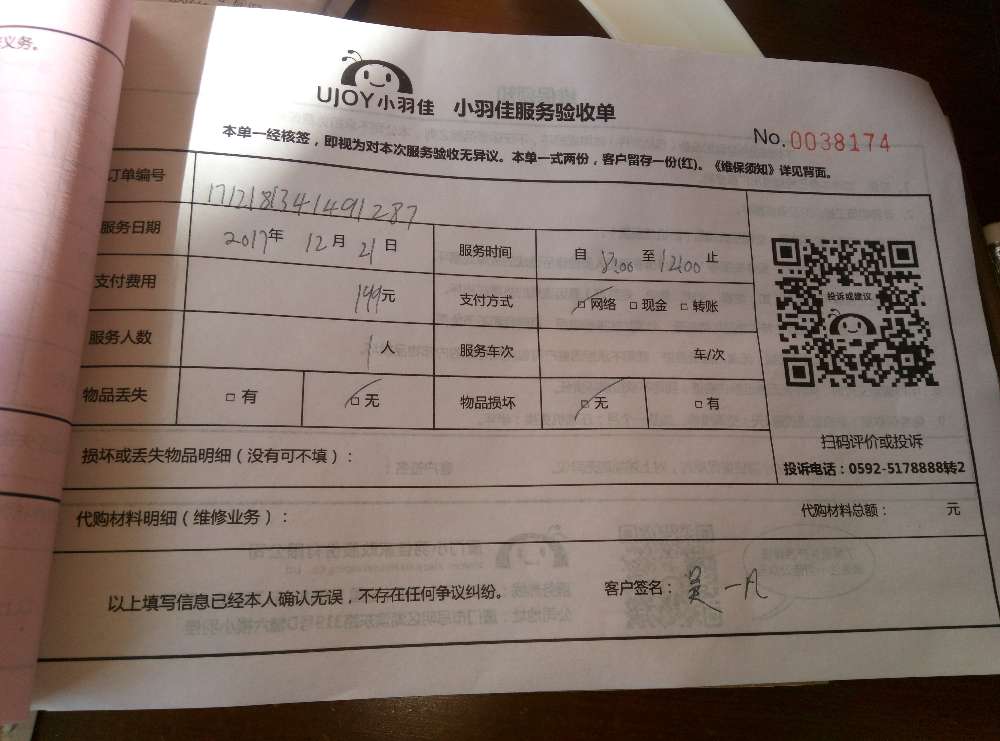 义务。
UJOY小羽佳 小羽佳服务验收单
No. 0038174
本单一经核签，即视为对本次服务验收无异议。本单一式两份，客户留存一份(红)。《维保须知》详见背面。
订单编号 1712181341491287
服务日期 2017年 12月 21日 服务时间 自 8:00 至 12:00 止
支付费用 149元 支付方式 □网络 □现金 □转账
服务人数 1人 服务车次 车/次
物品丢失 □有 □无 物品损坏 □无 □有
投诉或建议
扫码评价或投诉
投诉电话：0592-5178888转2
损坏或丢失物品明细（没有可不填）：
代购材料明细（维修业务）： 代购材料总额： 元
以上填写信息已经本人确认无误，不存在任何争议纠纷。 客户签名：